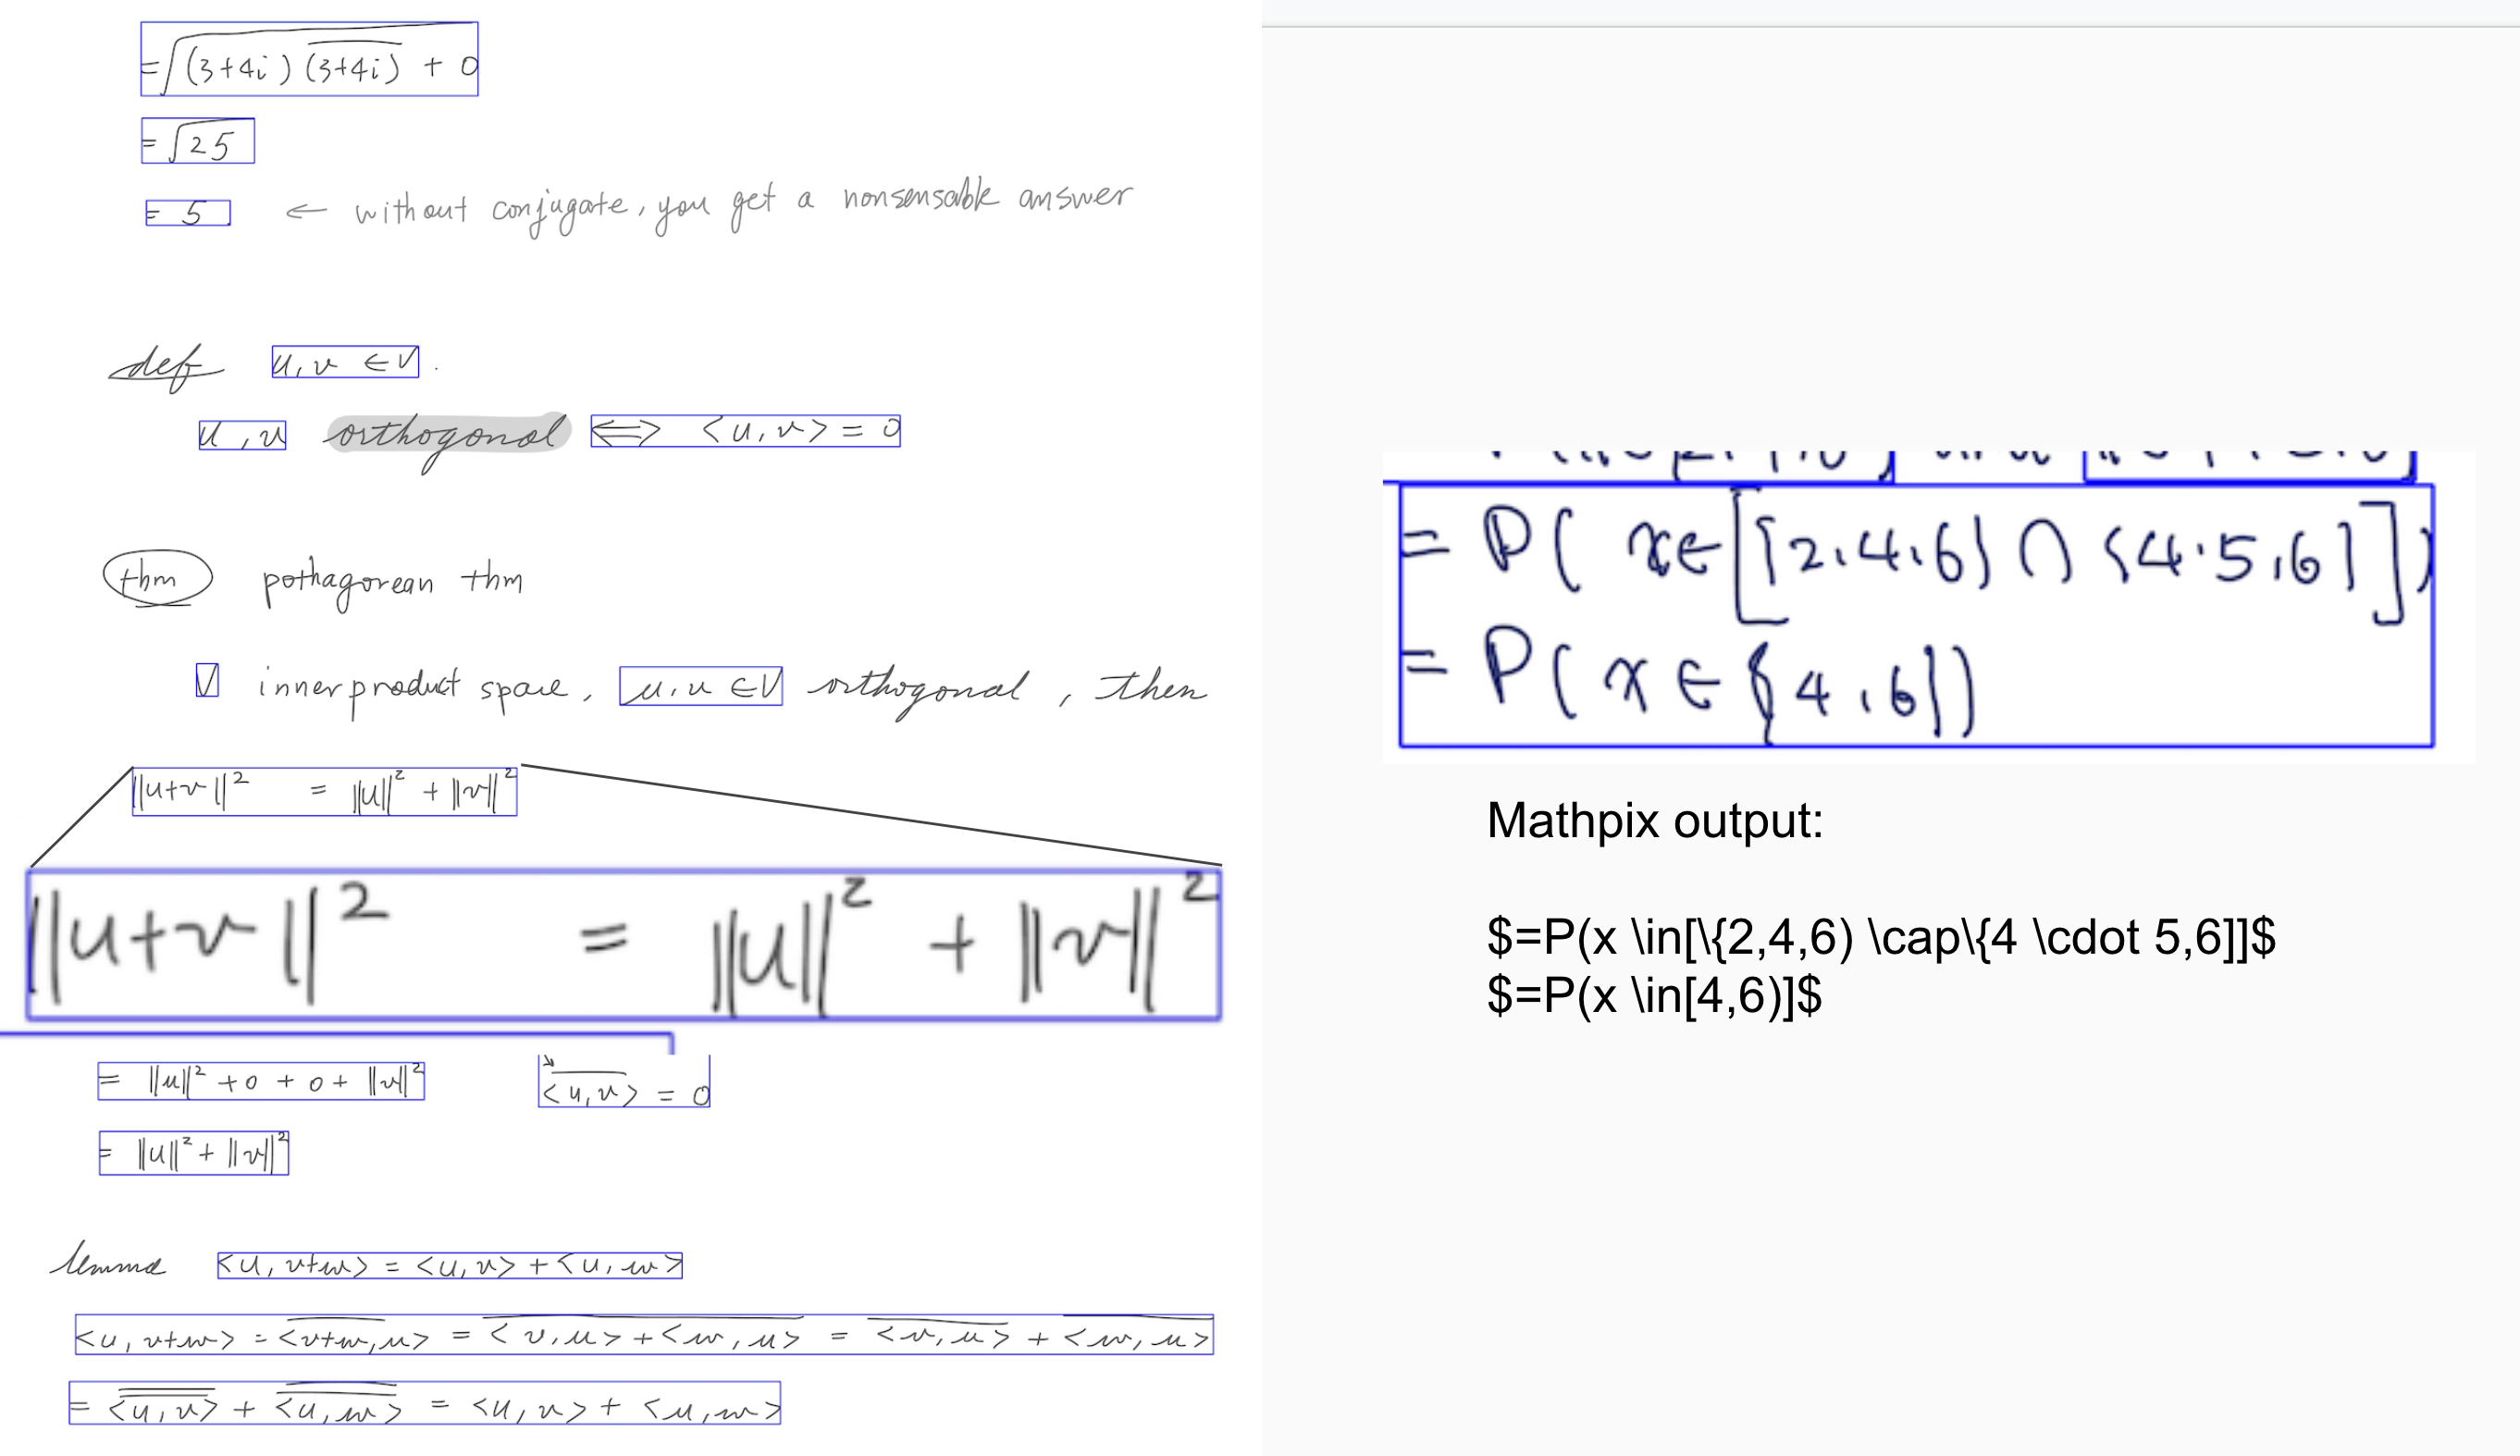 = √((3+4i) (3+4i)‾ + 0)
= √25
= 5 ← without conjugate, you get a nonsensable answer
def u, v ∈ V.
u, v orthogonal ⟺ <u, v> = 0
thm pothagorean thm
V inner product space, u, v ∈ V orthogonal, then
||u+v||² = ||u||² + ||v||²
||u+v||² = ||u||² + ||v||²
= ||u||² + 0 + 0 + ||v||²
<u, v>‾ = 0
= ||u||² + ||v||²
lemma <u, v+w> = <u, v> + <u, w>
<u, v+w> = <v+w, u>‾ = (<v, u> + <w, u>)‾ = <v, u>‾ + <w, u>‾
= <u, v>‾‾ + <u, w>‾‾ = <u, v> + <u, w>
= P( x∈[{2,4,6} ∩ {4·5,6}])
= P( x ∈ {4,6})
Mathpix output:
$=P(x \in[\{2,4,6) \cap\{4 \cdot 5,6]]$
$=P(x \in[4,6)]$